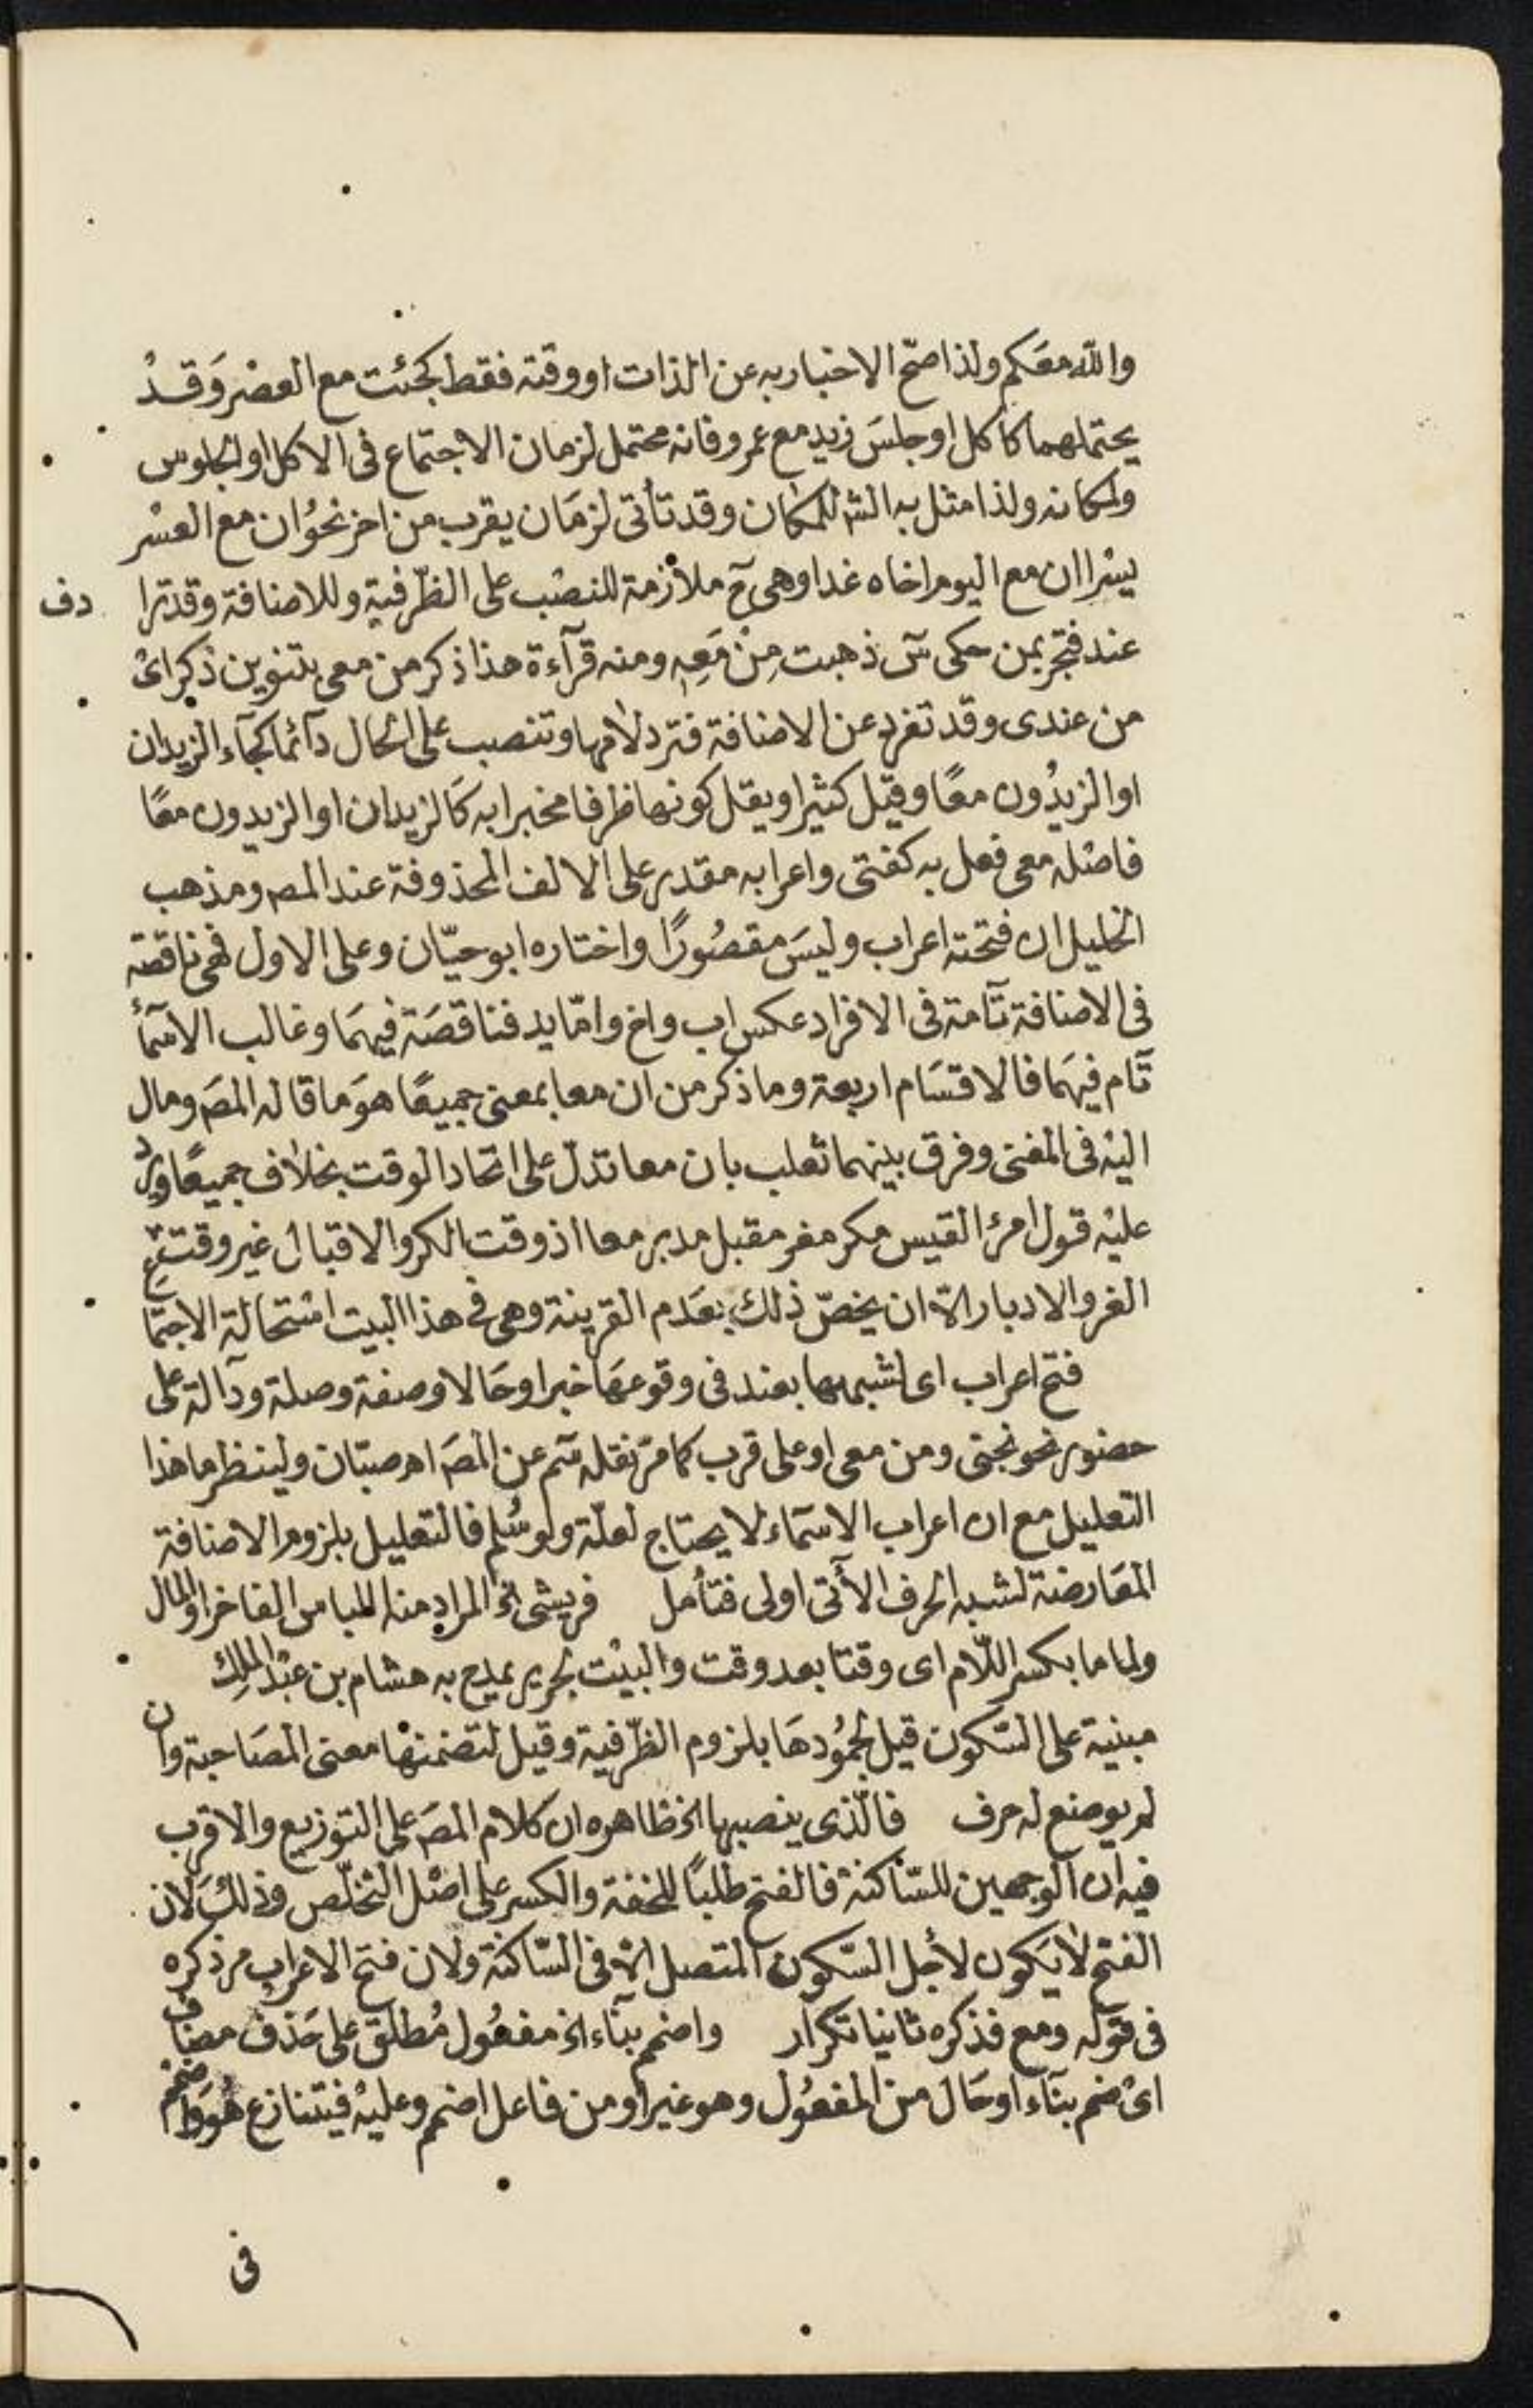 والله معكم ولذا صح الاخبار به عن الذات او وقته فقط كجئت مع العصر وقد
يحتملهما كاكل او جلس زيد مع عمرو فانه محتمل لزمان الاجتماع فى الاكل او الجلوس
ولمكانه ولذا مثل به الش للمكان وقد تأتى لزمان يقرب من اخر نحو ان مع العسر
يسرا ان مع اليوم اخاه غدا وهى ح ملازمة للنصب على الظرفية وللاضافة وقد ترا دف
عند فتجر بمن حكى س ذهبت من معه ومنه قرآءة هذا ذكر من معى بتنوين ذكر اى
من عندى وقد تفرد عن الاضافة فترد لامها وتنصب على الحال دآئما كجآء الزيدان
او الزيدون معًا وقيل كثيرا ويقل كونها ظرفا مخبرا به كالزيدان او الزيدون معًا
فاصله معى فعل به كفتى واعرابه مقدر على الالف المحذوفة عند المص ومذهب
الخليل ان فتحته اعراب وليس مقصورًا واختاره ابو حيّان وعلى الاول فهى ناقصة
فى الاضافة تآمة فى الافراد عكس اب واخ وامّا يد فناقصة فيهما وغالب الاسمآء
تآم فيهما فالاقسام اربعة وما ذكر من ان معا بمعنى جميعًا هو ما قاله المص ومال
اليه فى المغنى وفرق بينهما ثعلب بان معا تدل على اتحاد الوقت بخلاف جميعًا ويرد
عليه قول امرئ القيس مكر مفر مقبل مدبر معا اذ وقت الكر والاقبال غير وقت
الفر والادبار الا ان يخص ذلك بعدم القرينة وهى فى هذا البيت استحالة الاجتماع
فتح اعراب اى لشبهها بعند فى وقوعها خبرا وحالا وصفة وصلة ودآلة على
حضور نحو نجنى ومن معى او على قرب كما مر نقله سم عن المص اه صبّان ولينظر ما هذا
التعليل مع ان اعراب الاسماء لا يحتاج لعلّة ولو سُلم فالتعليل بلزوم الاضافة
المعارضة لشبه الحرف الأتى اولى فتأمل فريشى الخ المراد منه اللباس الفاخر او المال
ولماما بكسر اللّام اى وقتا بعد وقت والبيت لجرير يمدح به هشام بن عبد الملك
مبنية على السّكون قيل لجمودها بلزوم الظّرفية وقيل لتضمنها معنى المصاحبة وان
لم يوضع له حرف فالّذى ينصبها الخ ظاهره ان كلام المص على التوزيع والاقرب
فيه ان الوجهين للسّاكنة فالفتح طلبًا للخفة والكسر على اصل التخلّص وذلك لان
الفتح لا يكون لأجل السّكون المتصل الا فى السّاكنة ولان فتح الاعراب مر ذكره
فى قوله ومع فذكره ثانيا تكرار واضمم بنآء الخ مفعول مُطلق على حذف مضاف
اى ضم بنآء او حال من المفعول وهو غير او من فاعل اضمم وعليه فيتنازع هو واضمم
فى